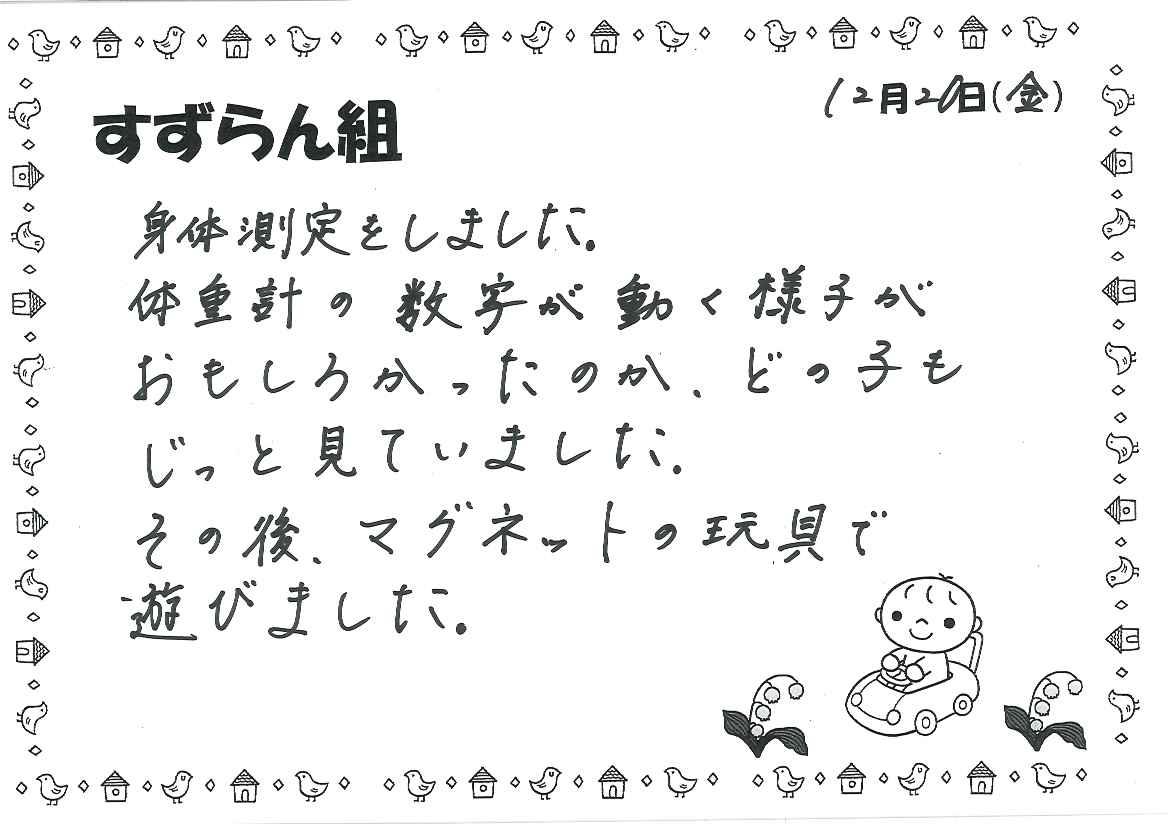 12月20日(金)
すずらん組
身体測定をしました。
体重計の数字が動く様子が
おもしろかったのか、どの子も
じっと見ていました。
その後、マグネットの玩具で
遊びました。